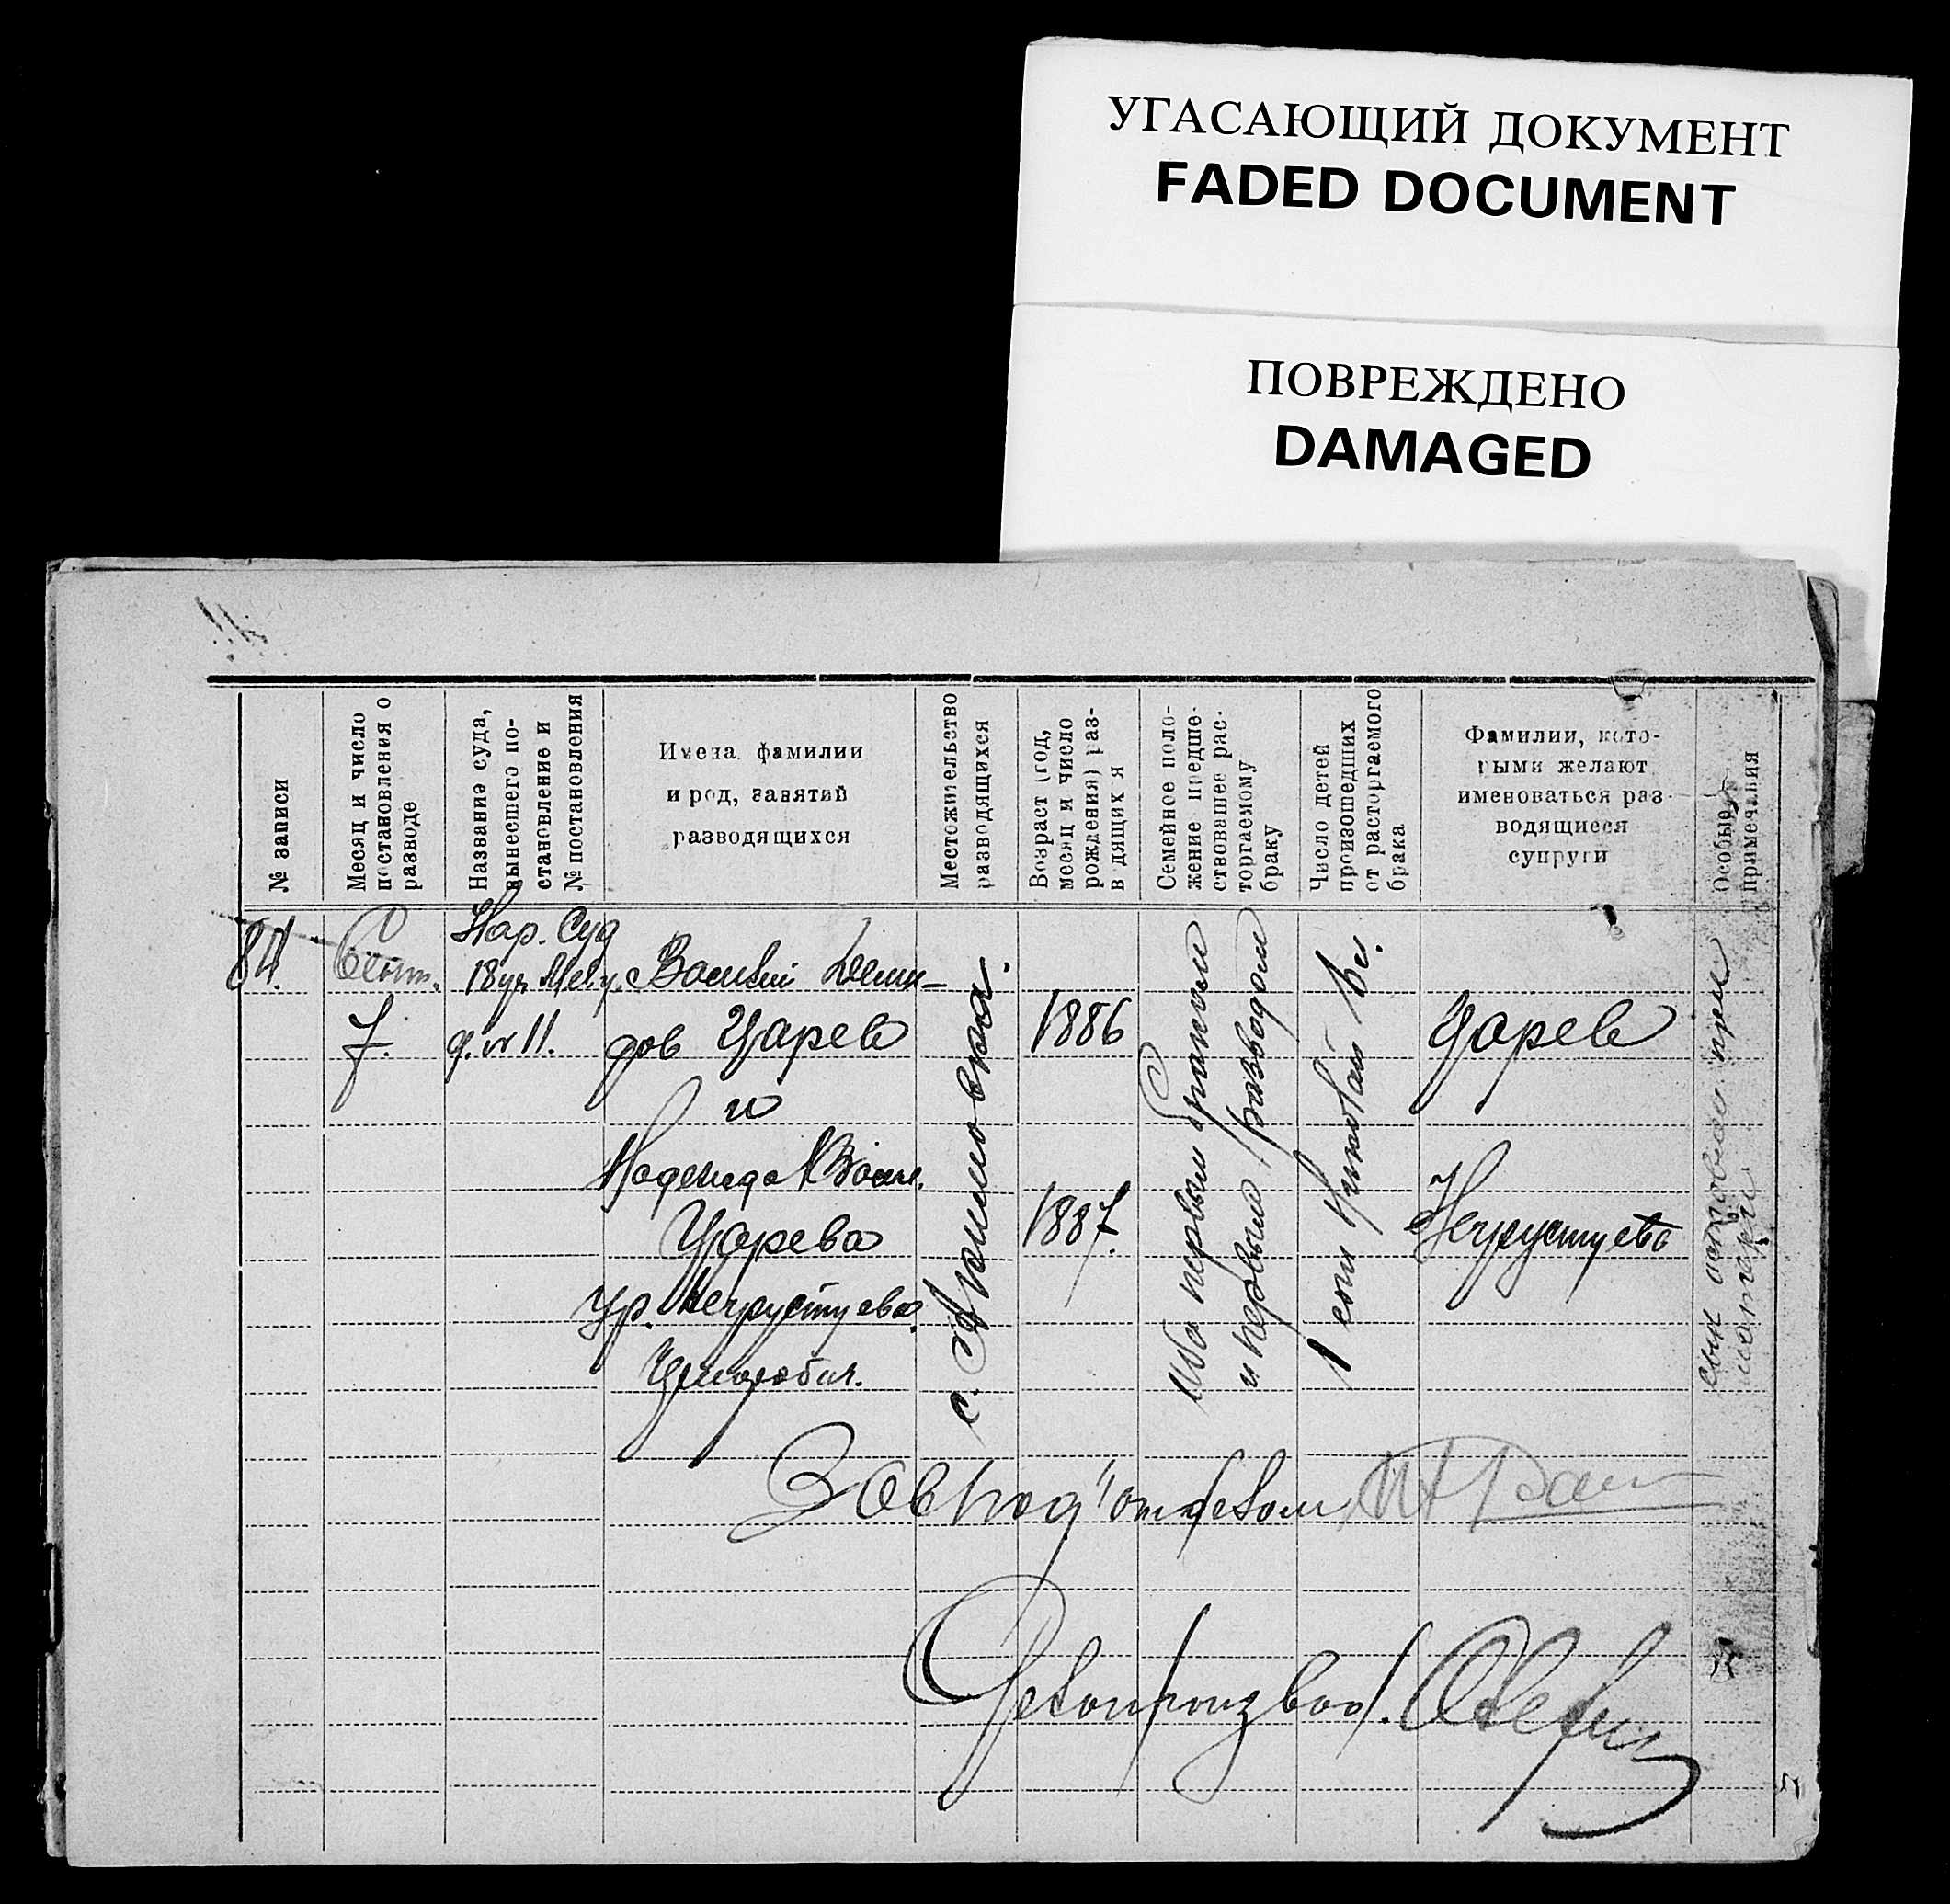 УГАСАЮЩИЙ ДОКУМЕНТ
FADED DOCUMENT
ПОВРЕЖДЕНО
DAMAGED
№ записи
Месяц и число
постановления о
разводе
Название суда,
вынесшего по-
становление и
№ постановления
Имена, фамилии
и род, занятий
разводящихся
Местожительство
разводящихся
Возраст (год,
месяц и число
рождения) раз-
в дящих я
Семейное поло-
жение предше-
ствовавшее рас-
торгаемому
браку
Число детей
произошедших
от расторгаемого
брака
Фамилии, кото-
рыми желают
именоваться раз-
водящиеся
супруги
Особые
примечания
84.
Сент.
7.
Нар. Суд
18 уч. Мел. у.
д. № 11.
Василий Деми-
дов Царев
и
Надежда Васил.
Царева
ур.
с. Акимовка.
1886
1887.
Оба первым браком
и первым разводом
1 сын
Царев
сын оставлен при
матери
Завпод'отделом
Делопроизвод.